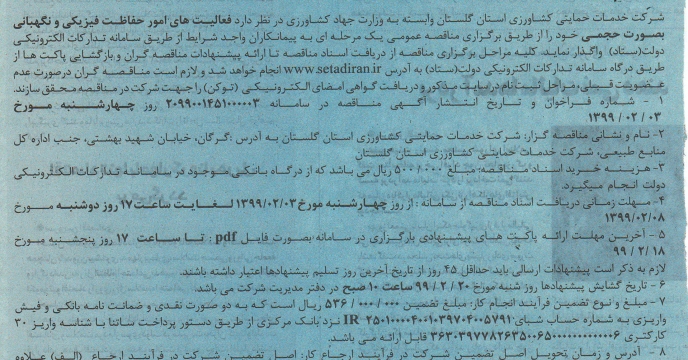 شرکت خدمات حمایتی کشاورزی استان گلستان وابسته به وزارت جهاد کشاورزی در نظر دارد فعالیت های امور حفاظت فیزیکی و نگهبانی
بصورت حجمی خود را از طریق برگزاری مناقصه عمومی یک مرحله ای به پیمانکاران واجد شرایط از طریق سامانه تدارکات الکترونیکی
دولت(ستاد) واگذار نماید. کلیه مراحل برگزاری مناقصه از دریافت اسناد مناقصه تا ارائه پیشنهادات مناقصه گران و بازگشایی پاکت ها از
طریق درگاه سامانه تدارکات الکترونیکی دولت(ستاد) به آدرس www.setadiran.ir انجام خواهد شد و لازم است مناقصه گران درصورت عدم
عضویت قبلی، مراحل ثبت نام در سایت مذکور و دریافت گواهی امضای الکترونیکی (توکن) را جهت شرکت در مناقصه محقق سازند.
۱ - شماره فراخوان و تاریخ انتشار آگهی مناقصه در سامانه ۲۰۹۹۰۰۱۴۵۱۰۰۰۰۰۳ روز چهارشنبه مورخ
۱۳۹۹ / ۰۲ / ۰۳
۲- نام و نشانی مناقصه گزار: شرکت خدمات حمایتی کشاورزی استان گلستان به آدرس :گرگان، خیابان شهید بهشتی، جنب اداره کل
منابع طبیعی، شرکت خدمات حمایتی کشاورزی استان گلستان
۳- هزینه خرید اسناد مناقصه: مبلغ ۵۰۰/۰۰۰ ریال می باشد که از درگاه بانکی موجود در سامانه تدارکات الکترونیکی
دولت انجام میگیرد.
۴- مهلت زمانی دریافت اسناد مناقصه از سامانه : از روز چهارشنبه مورخ ۱۳۹۹/۰۲/۰۳ لغایت ساعت ۱۷ روز دوشنبه مورخ
۱۳۹۹/۰۲/۰۸
۵ - آخرین مهلت ارائه پاکت های پیشنهادی بارگزاری در سامانه بصورت فایل pdf : تا ساعت ۱۷ روز پنجشنبه مورخ
۹۹ / ۲ / ۱۸
لازم به ذکر است پیشنهادات ارسالی باید حداقل ۴۵ روز از تاریخ آخرین روز تسلیم پیشنهادها اعتبار داشته باشند.
۶ - تاریخ گشایش پیشنهادها روز شنبه مورخ ۲۰ / ۲ / ۹۹ ساعت ۱۰ صبح در دفتر مدیریت شرکت می باشد.
۷ - مبلغ و نوع تضمین فرآیند انجام کار: مبلغ تضمین ۰۰۰ / ۰۰۰ / ۵۳۶ ریال است که به دو صورت نقدی و ضمانت نامه بانکی و فیش
واریزی به شماره حساب شبای IR-۲۵۰۱۰۰۰۰۴۰۰۱۰۳۹۷۰۴۰۰۵۷۹۱ نزد بانک مرکزی از طریق دستور پرداخت ساتنا با شناسه واریز ۳۰
کارکتری ۳۶۳۰۳۹۷۷۸۲۶۳۵۰۰۶۵۰۰۰۰۰۰۰۰۰۰۰۶ قابل ارائه می باشد.
۸ - آدرس و زمان تحویل اصل تضمین شرکت در فرآیند ارجاع کار: اصل تضمین شرکت در فرآیند ارجاع (الف) علاوه